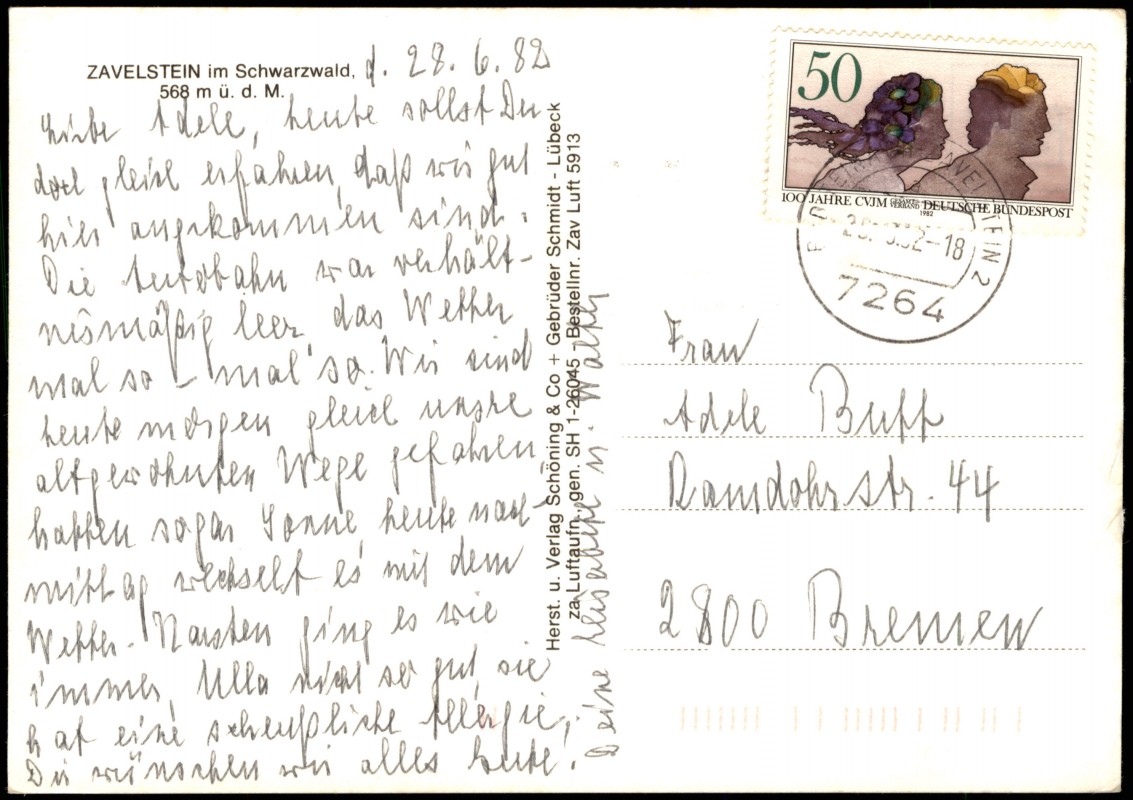 ZAVELSTEIN im Schwarzwald, d. 28.6.82
568 m ü. d. M.
Liebe Adele, heute sollst Du
doch gleich erfahren, daß wir gut
hier angekommen sind.
Die Autobahn war verhält-
nismäßig leer das Wetter
mal so - mal so. Wir sind
heute morgen gleich unsre
altgewohnten Wege gefahren
hatten sogar Sonne, heute nach-
mittag wechselt es mit dem
Wetter. Karsten ging es wie
immer, Ulla nicht so gut, sie
hat eine scheußliche Allergie.
Dir wünschen wir alles Gute!
Deine Liesabeth u. Walter
Herst. u. Verlag Schöning & Co + Gebrüder Schmidt - Lübeck
za Luftaufn. gen. SH 1-26045 - Bestellnr. Zav Luft 5913
50
100 JAHRE CVJM GESAMT-VERBAND DEUTSCHE BUNDESPOST
1982
2
-18
7264
Frau
Adele Buff
Ramdohrstr. 44
2800 Bremen